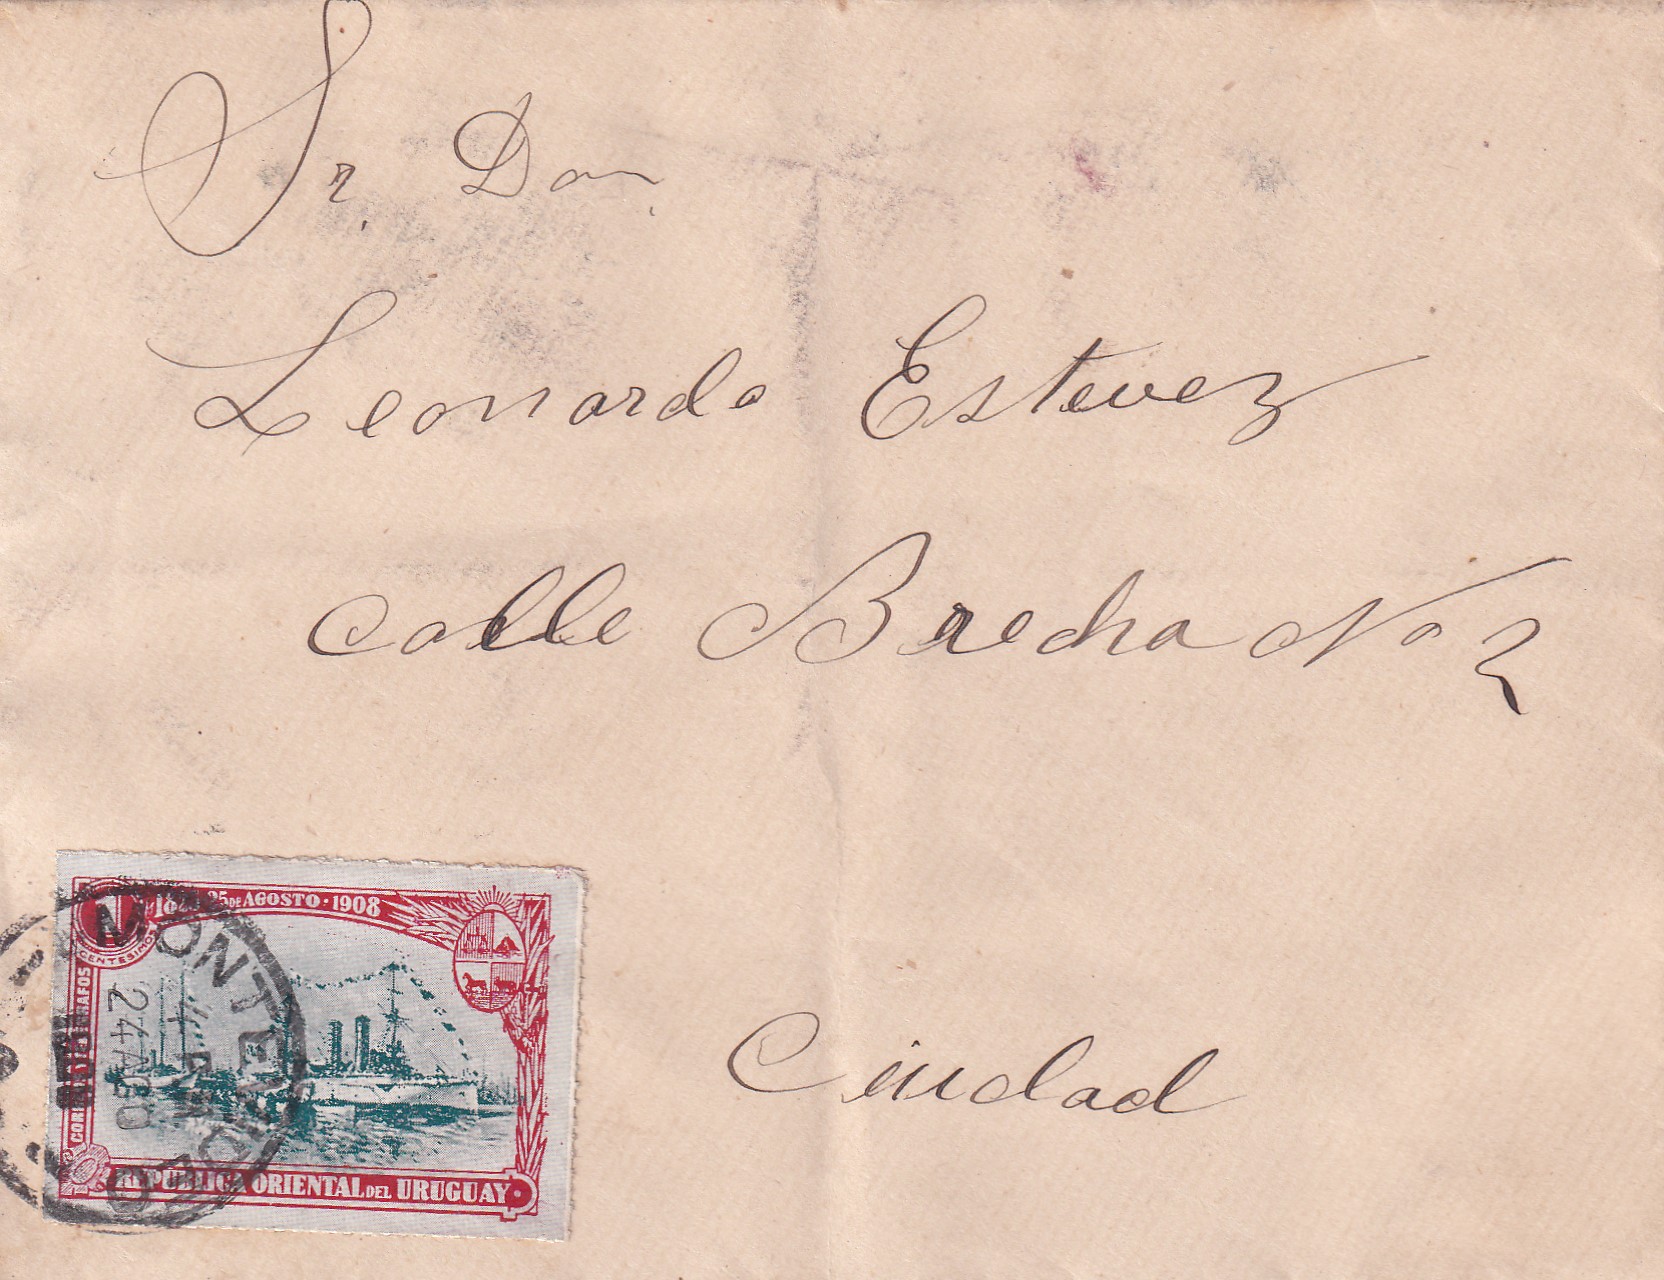 Sr. Don.
Leonardo Estevez
Calle Brecha No 2
Ciudad
1
CENTESIMO
25 DE AGOSTO · 1908
REPUBLICA ORIENTAL DEL URUGUAY
MONTEVIDEO
4 PM
24 AGO